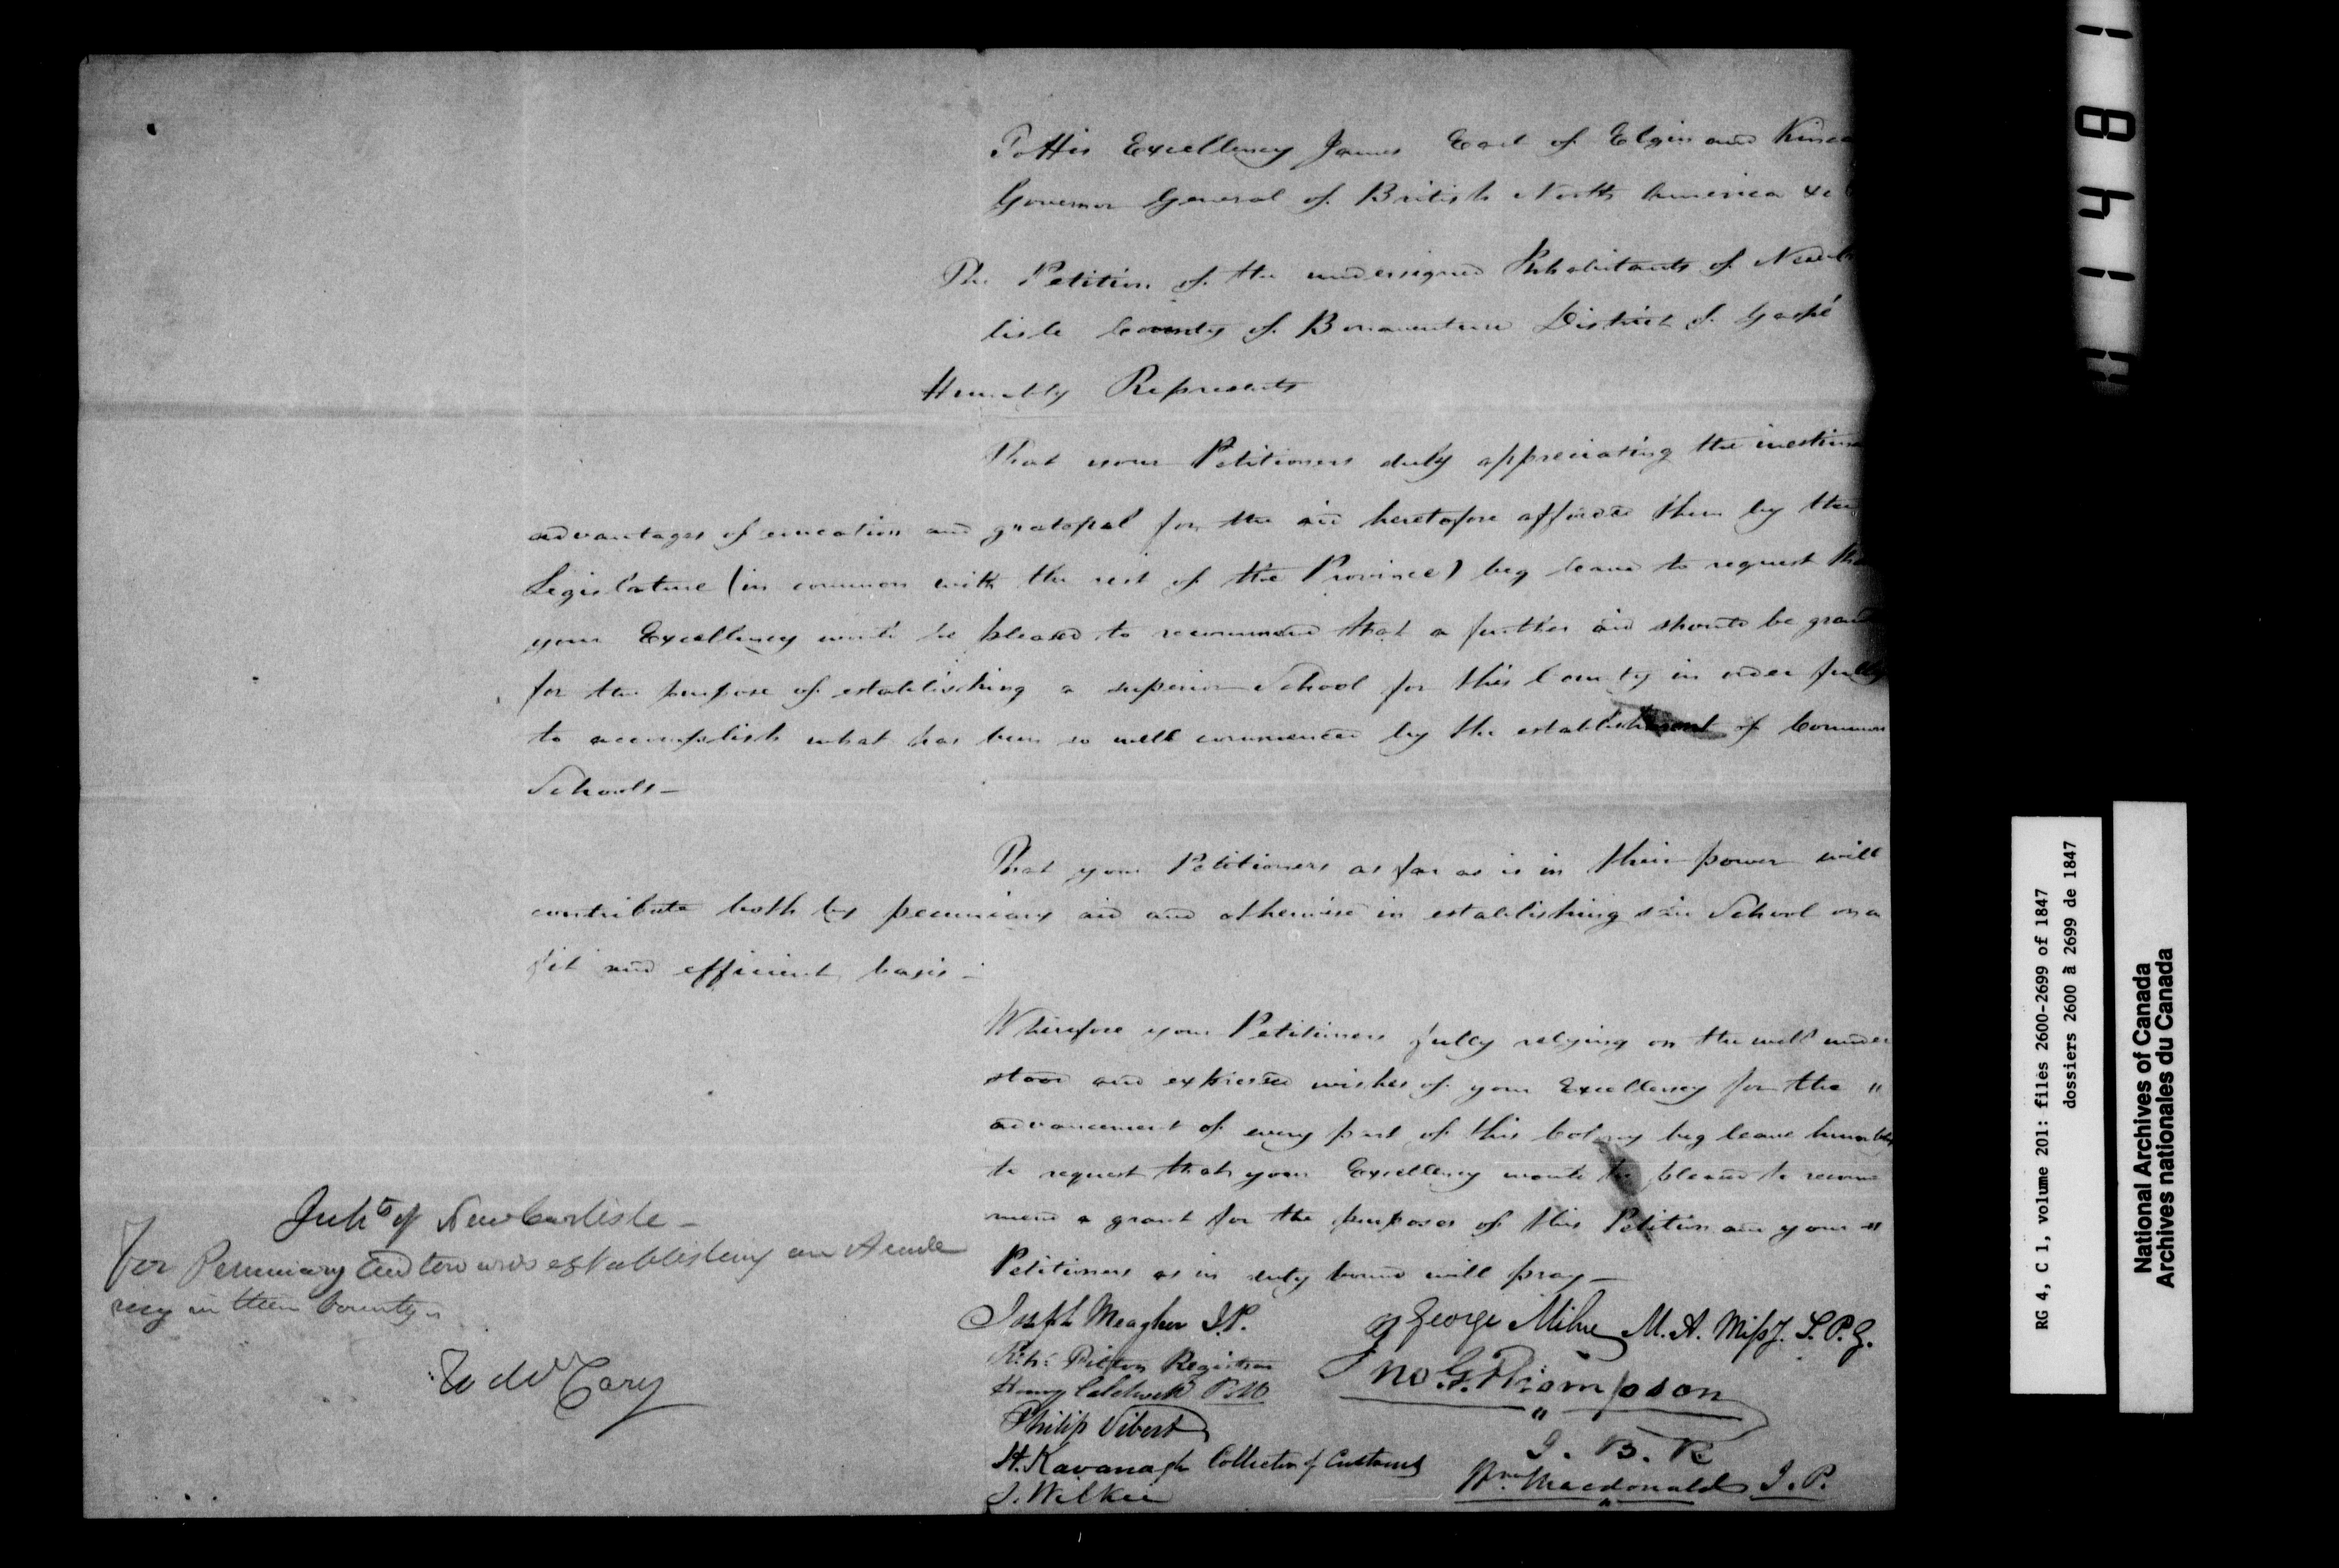 To His Excellency James Earl of Elgin and Kinca
Governor General of British North America &c
The Petition of the undersigned Inhabitants of New Car
lisle County of Bonaventure District of Gaspé
Humbly Represents
That your Petitioners duly appreciating the inestima
advantages of education and grateful for the aid heretofore afforded them by the
Legislature (in common with the rest of the Province) beg leave to request tha
your Excellency would be pleased to recommend that a further aid should be grant
for the purpose of establishing a superior School for this County in order fully
to accomplish what has been so well commenced by the establishment of Common
Schools —
That your Petitioners as far as is in their power will
contribute both by pecuniary aid and otherwise in establishing said School on a
fit and efficient basis —
Wherefore your Petitioners fully relying on the well under
stood and expressed wishes of your Excellency for the "
advancement of every part of this Colony beg leave humbly
to request that your Excellency would be pleased to recom
mend a grant for the purposes of this Petition and your "
Petitioners as in duty bound will pray —
Joseph Meagher J.P.
George Milne M.A. Missy. S.P.G.
Jno. G. Thompson
J. B. R.
Registrar
Henry Caldwell P.M
Philip Vibert
H. Kavanagh Collector of Customs
J. Wilkie
Wm. Macdonald J.P.
Inhts of New Carlisle —
For Pecuniary Aid towards establishing an Acade
my in their County.
Cary
1 8 4 1
RG 4, C 1, volume 201: files 2600-2699 of 1847
dossiers 2600 à 2699 de 1847
National Archives of Canada
Archives nationales du Canada